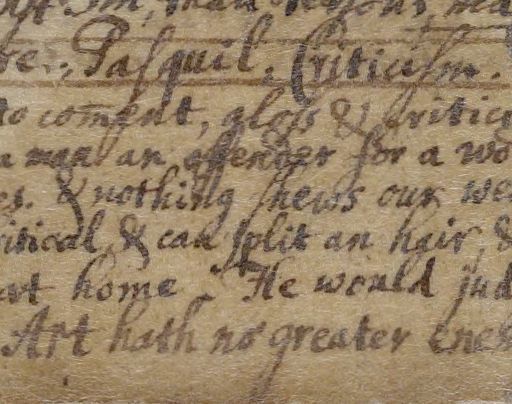 than
re., Pasquil. Criticism.
to com̄ent, gloss & critici
a man an offender for a wo
es. & nothing shews our we
ritical & can split an hair, &
art home. He would jud
Art hath no greater ene